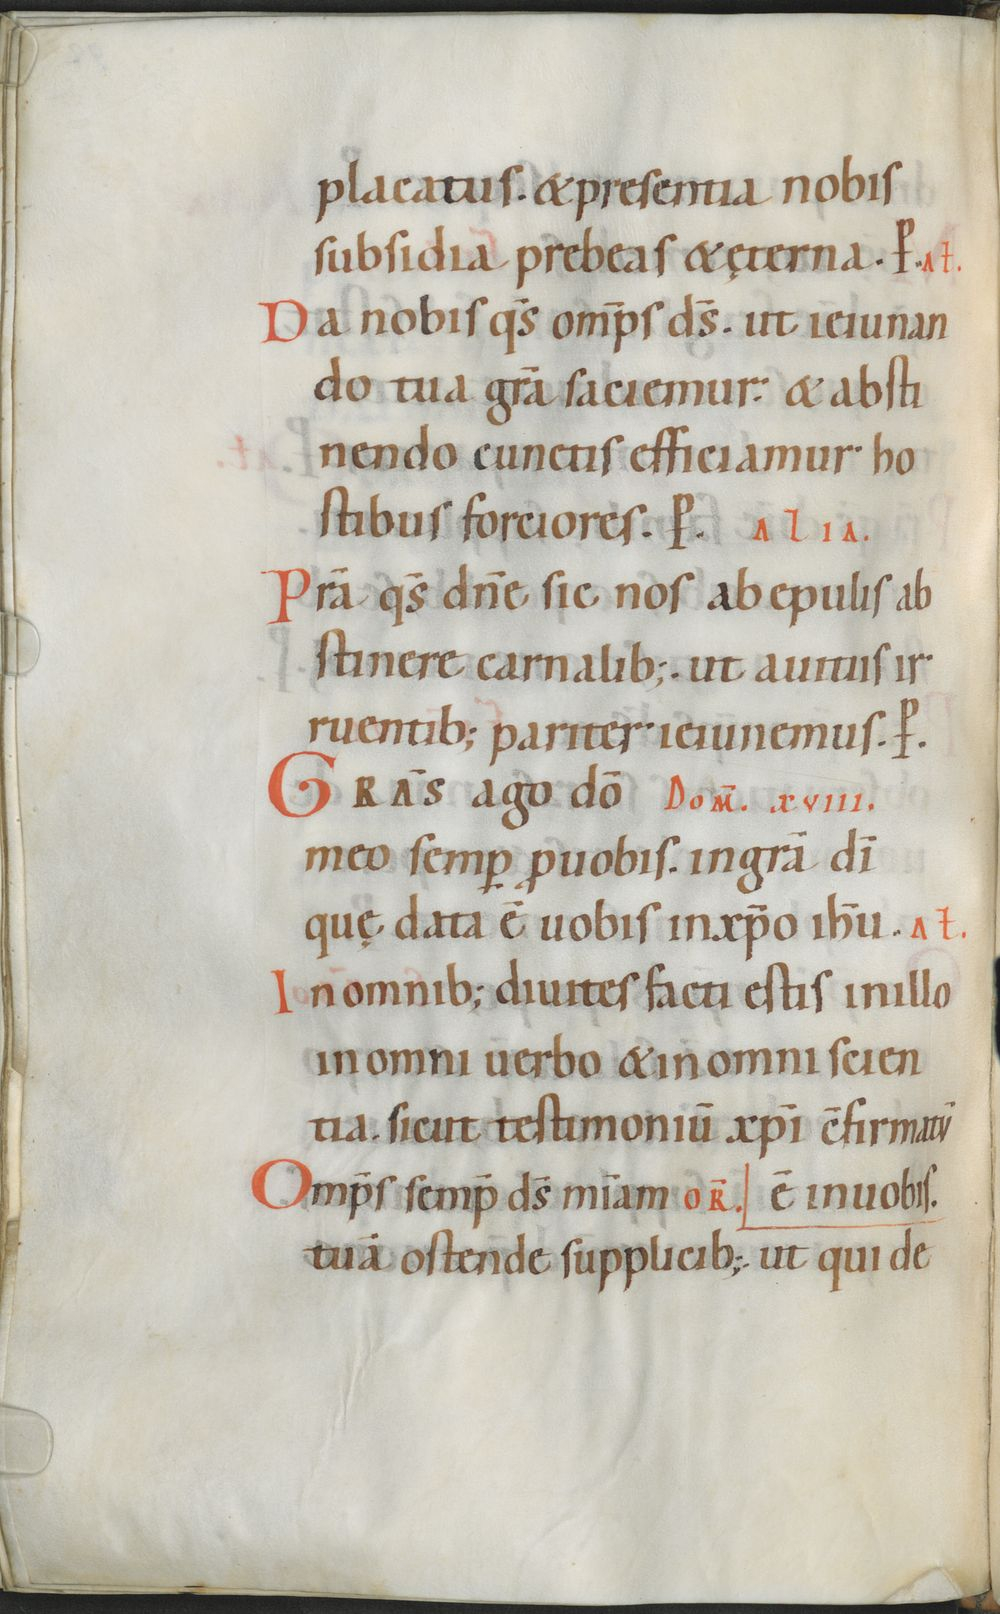 placatus. & presentia nobis
subsidia prebeas & ęterna. P̄. Ał.
Da nobis q̄s om̄ps d̄s. ut ieiunan
do tua gr̄a saciemur: & absti
nendo cunctis efficiamur ho
stibus forciores. P̄. ALIA.
Pr̄a q̄s dn̄e sic nos ab epulis ab
stinere carnalib;. ut a uitiis ir
ruentib; pariter ieiunemus. P̄.
GRAS̄ ago dō Dom̄. xviii.
meo semꝑ ꝓ uobis. in gr̄a dī
quę data ē uobis in xp̄o ih̄u. Ał.
In omnib; diuites facti estis in illo
in omni uerbo & in omni scien
tia. sicut testimoniū xp̄i c̄firmatū
Om̄ps semp̄ d̄s mīam OR̄. ē in uobis.
tuā ostende supplicib;. ut qui de